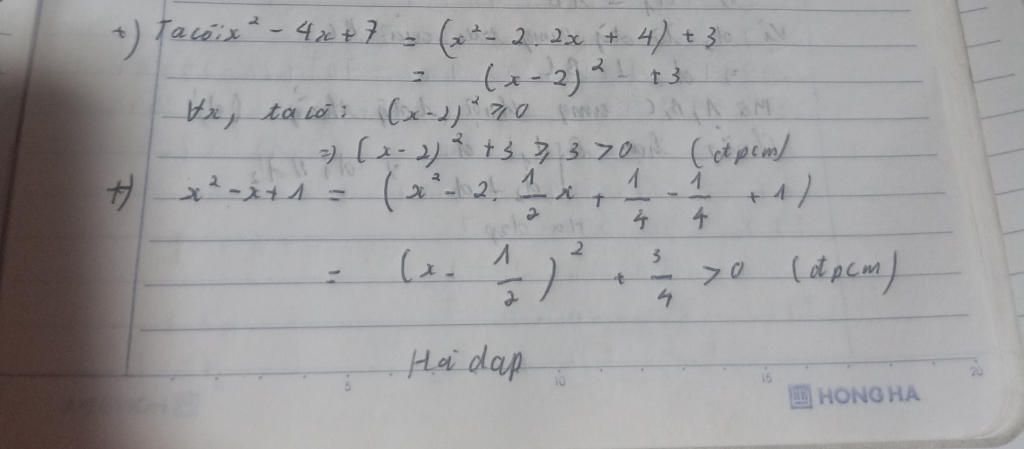 +) Ta có: x² - 4x + 7 = (x² - 2. 2x + 4) + 3
= (x - 2)² + 3
∀x, ta có: (x - 2)² ≥ 0
⇒ (x - 2)² + 3 ≥ 3 > 0 (đpcm)
+) x² - x + 1 = (x² - 2. 1/2 x + 1/4 - 1/4 + 1)
= (x - 1/2)² + 3/4 > 0 (đpcm)
5 10 15 20
HONG HA